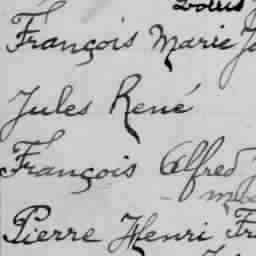 Louis
François Marie
Jules René
François Alfred
Pierre Henri